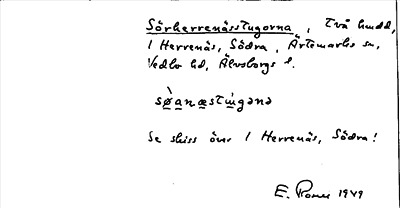 Sörherrenässtugorna, Två hmdd,
1 Herrenäs, Södra, Ärtemarks sn,
Vedbo hd, Älvsborgs l.
sø̀anæstɯgənə
Se skiss över 1 Herrenäs, Södra!
E. 1949